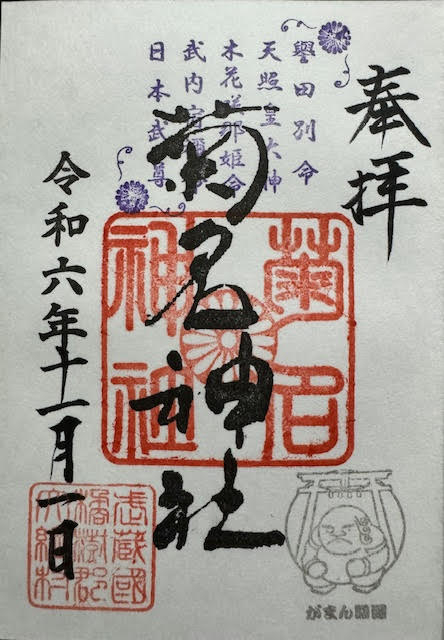 奉拝
譽田別命
天照皇大神
木花咲耶姫命
武内宿禰命
日本武尊
菊名神社
菊名
神社
令和六年十一月一日
武蔵國
橘樹郡
がまん様